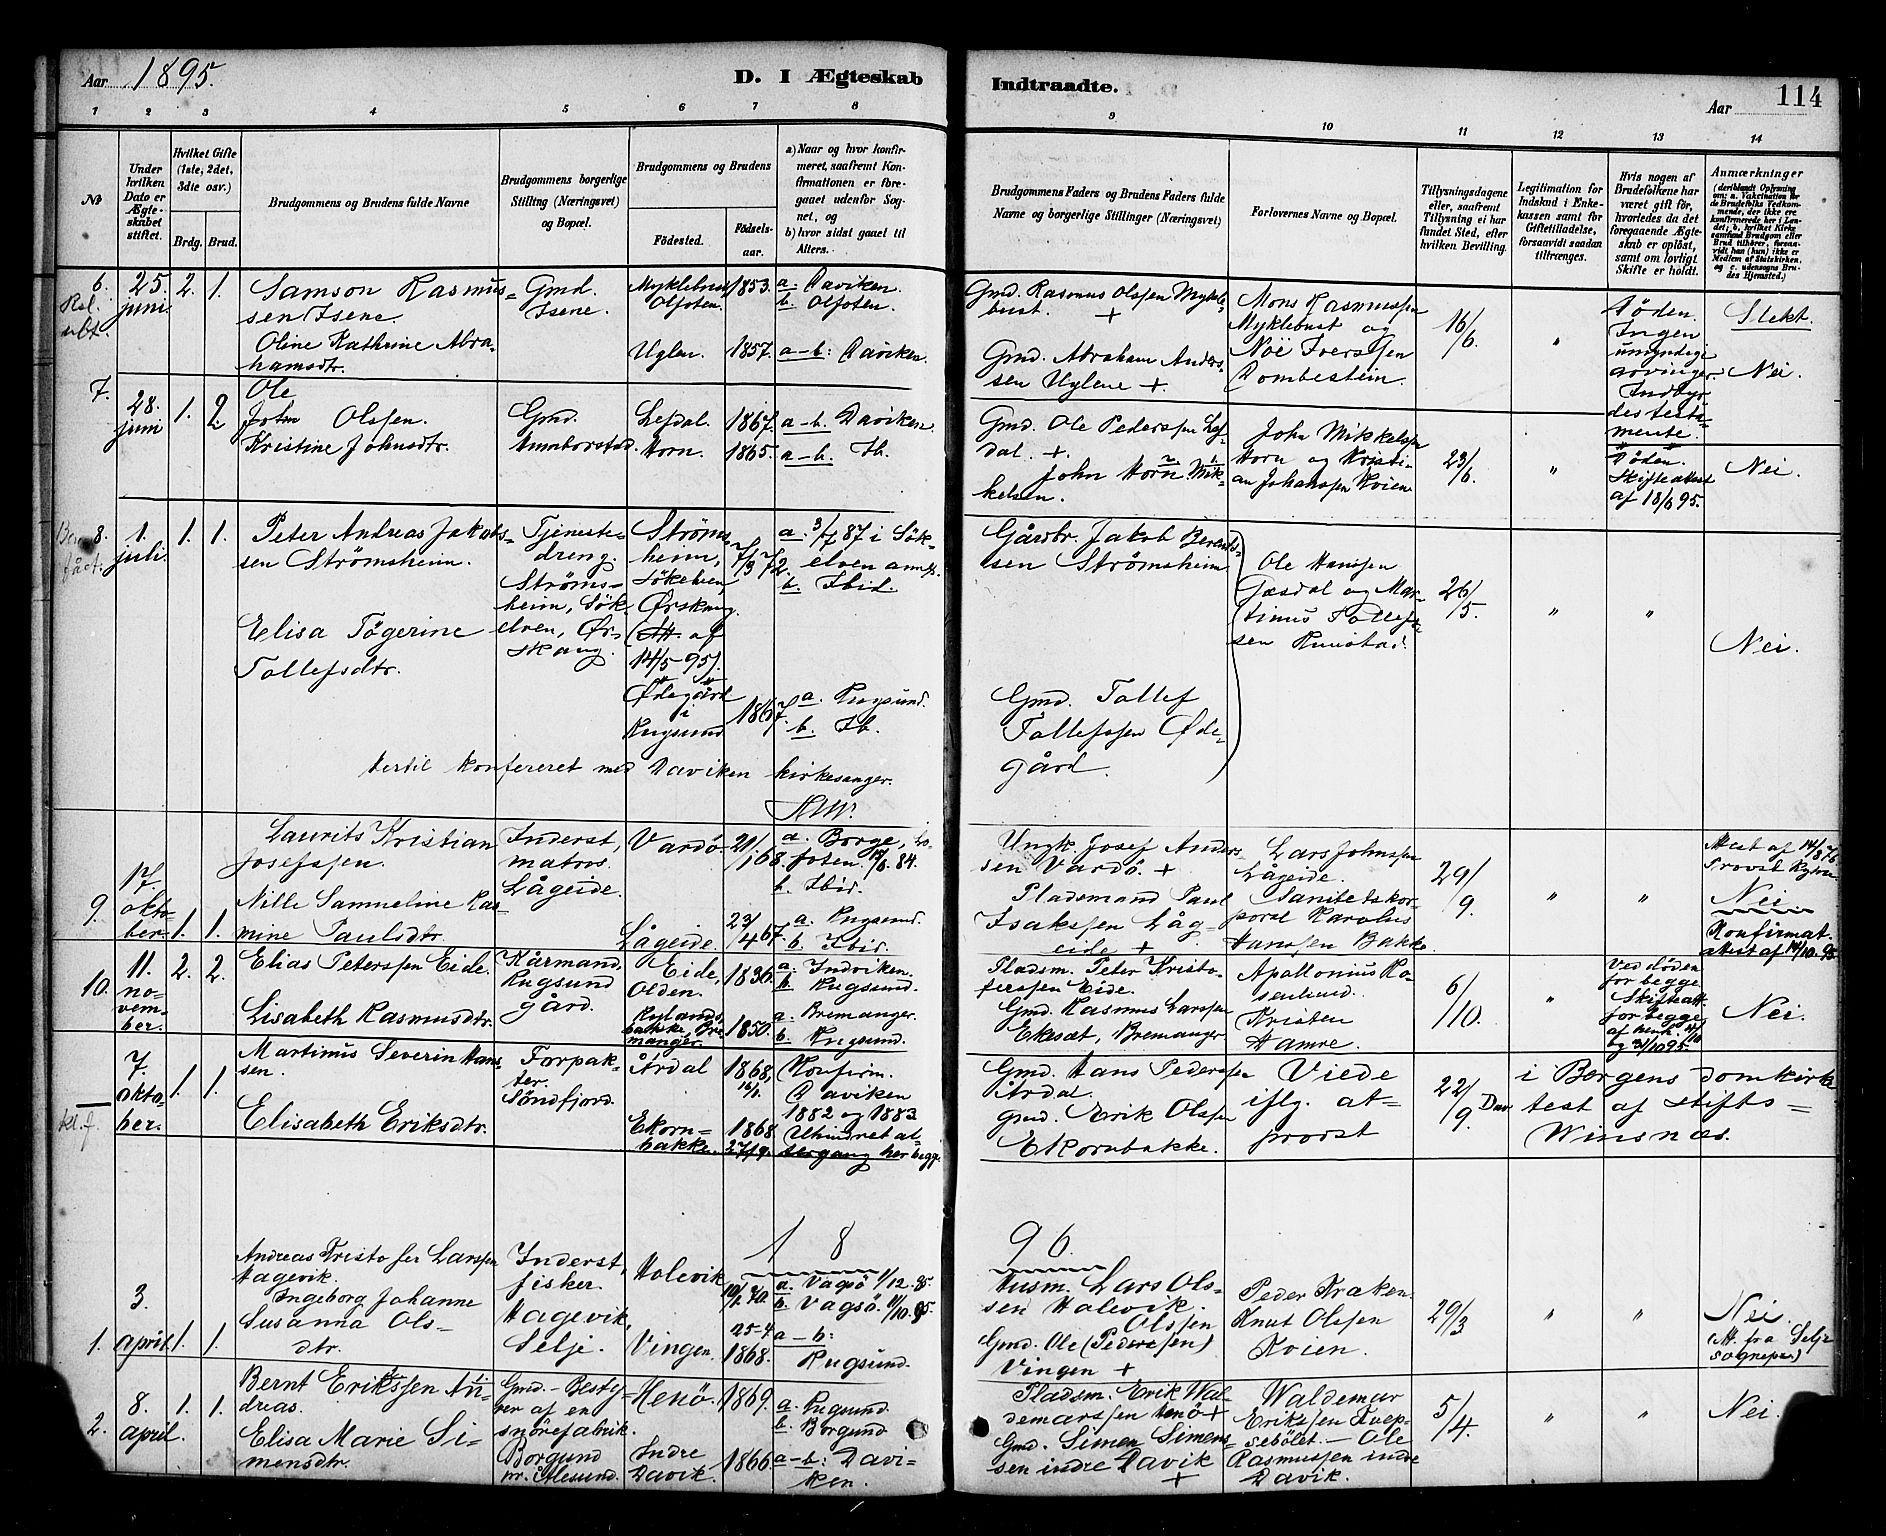 Aar 1895.
D. I Ægteskab
Indtraadte.
Aar
114
1 2 3 4 5 6 7 8
9 10 11 12 13 14
No
Under hvilken Dato er Ægteskabet stiftet.
Hvilket Gifte (1ste, 2det, 3die osv.)
Brdg. Brud.
Brudgommens og Brudens fulde Navne
Brudgommens borgerlige Stilling (Næringsvei) og Bopæl.
Brudgommens og Brudens
Fødested.
Fødselsaar.
a) Naar og hvor konfirmeret, saafremt Konfirmationen er foregaaet udenfor Sognet, og
b) hvor sidst gaaet til Alters.
Brudgommens Faders og Brudens Faders fulde Navne og borgerlige Stillinger (Næringsvei)
Forlovernes Navne og Bopæl.
Tillysningsdagene eller, saafremt Tillysning ei har fundet Sted, efter hvilken Bevilling.
Legitimation for Indskud i Enkekassen samt for Giftetilladelse, forsaavidt saadan tiltrænges.
Hvis nogen af Brudefolkene har været gift før, hvorledes da det foregaaende Ægteskab er opløst, samt om lovligt Skifte er holdt.
Anmærkninger
6.
25. juni
2. 1.
Samson Rasmussen Isene.
Oline Kathrine Abrahamsdtr.
Gmd. Isene.
Myklebust Olfoten
Uglen.
1853.
1857.
a. Daviken.
b. Olfoten.
a-b: Daviken.
Gmd. Rasmus Olssen Myklebust. +
Gmd. Abraham Anderssen Uglene +.
Mons Rasmussen Myklebust og
Noë Iverssen Dombestein.
16/6.
"
Døden. Ingen umyndige arvinger.
Slekt.
Nei.
7.
28. juni
1. 2.
Ole
John Olssen.
Kristine Johnsdtr.
Gmd.
Lefdal.
Horn.
1867.
1865.
a-b. Daviken.
a-b. Ib.
Gmd. Ole Pederssen Lefdal. +.
John Horn Mikkelsen.
John Mikkelssen Horn og Kristian Johanssen Kvien
23/6.
"
Døden. Skifteattest af 18/6 95.
Nei.
8.
1. juli.
1. 1.
Peter Andreas Jakobssen Strömsheim.
Elisa Tögerine Tollefsdtr.
Tjenestedreng. Strömsheim, Sökelven, Ørskoug.
Strömsheim, Sökelven, Ørskoug.
14/5 95).
Ødegård i Rugsund
7/3 72.
1867.
a. 3/7 87 i Sökelven
b. Ibid.
a. Rugsund.
b. Ib.
Gårdbr. Jakob Berentssen Strömsheim
Gmd. Tollef Tollefssen Ødegård.
Ole Hanssen og Martinus Tollefssen
26/5.
" "
Nei.
konfereret med Daviken kirkesanger.
9.
17. oktober
1. 1.
Laurits Kristian Josefssen.
Nille Samueline Rasmine Paulsdtr.
Inderst, matros. Lågeide.
Vardö.
Lågeide.
21/1 68.
23/4 67.
a. Borge, Lofoten. 84.
b. Ibid.
a. Rugsund.
b. Ibid.
Ungk. Josef Anderssen Vardö. +
Pladsmand Paul Isakssen Lågeide +
Lars Johnssen Lågeide.
Sanitetskorporal Karolus Hanssen Bakke.
29/9.
" "
Nei
Konfirmat. attest af 14/10. 95
10.
11. november
2. 2.
Elias Peterssen Eide.
Lisabeth Rasmusdtr.
Kårmand, Rugsund gård.
Eide, Olden.
Bremanger.
1836.
1850.
a. Indviken.
b. Rugsund.
a. Bremanger.
b. Rugsund.
Pladsm. Peter Kristoferssen Eide.
Gmd. Rasmus Larssen Ekesæt, Bremanger
Apollonius Rosenlund.
Kristen Hamre.
6/10.
"
Ved döden for begge Skifteatt. for begge og 31/10 95.
Nei.
7. oktober.
1. 1.
Martinus Severin Hanssen.
Elisabeth Eriksdtr.
Forpakter. Söndfjord.
Årdal
Ekornbakke.
1868, 16/1.
1868 27/9.
Konfirm. Daviken 1882 og 1883
Uhindret altergang her begge
Gmd. Hans Pederssen Årdal.
Gmd. Erik Olssen Ekornbakke.
Viede i Bergens domkirke
iflg. attest af stiftsprovst Winsnæs.
22/9
1896.
1.
3. april.
1. 1.
Andreas Kristofer Larssen Hagevik.
Ingeborg Johanne Susanna Olsdtr.
Inderst, fisker. Hagevik, Selje.
Holevik
Vingen.
10/1. 70.
25-4 1868.
a. Vagsö 1/12. 85
b. Vagsö. 11/10. 95.
a-b: Rugsund.
Husm. Lars Olssen Holevik.
Olssen
Gmd. Ole (Pederssen) Vingen +
Peder Kraken.
Knut Olssen Kvien.
29/3
" "
Nei.
(Att. fra Selje sognepr.)
2.
8. april.
1. 1.
Bernt Erikssen Andreas.
Elisa Marie Simensdtr.
Gmd. - Bestyrer af en snörefabrik. Borgund pr. Ålesund.
Henö.
Indre Davik.
1869.
1866
a. Rugsund
b. Borgund
a-b: Daviken.
Pladsm. Erik Waldemarssen Henö +
Gmd. Simen Simenssen indre Davik +
Waldemar Erikssen - Ole Rasmussen indre Davik.
5/4.
" "
Nei.